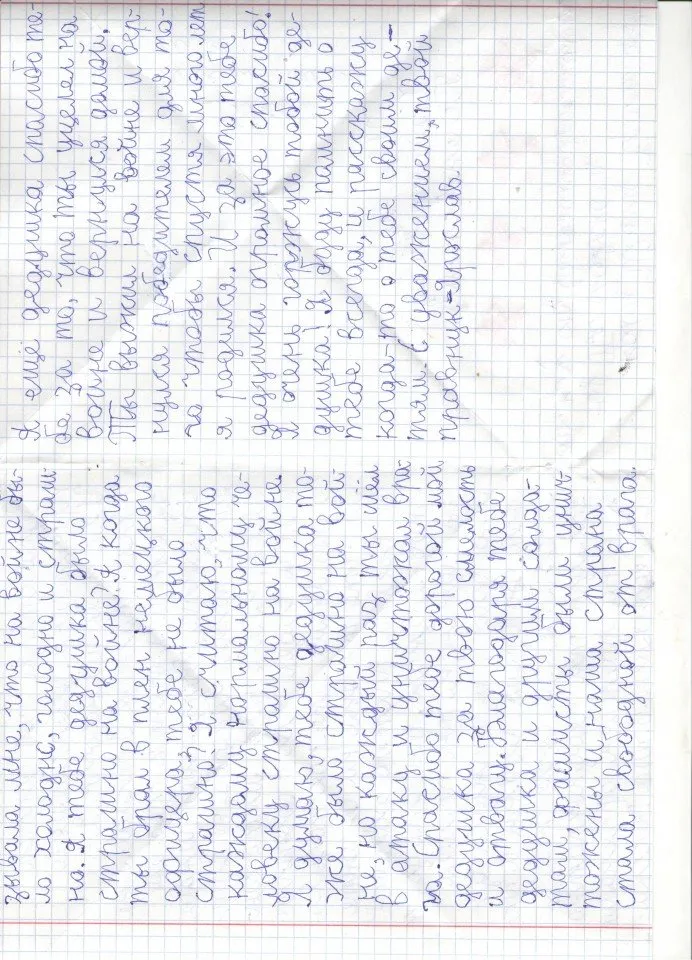 зывала мне, что на войне бы-
ло холодно, голодно и страш-
но. А тебе дедушка было
страшно на войне? А когда
ты брал в плен немецкого
офицера, тебе не было
страшно? Я считаю, что
каждому нормальному че-
ловеку страшно на войне.
Я думаю, тебе дедушка то-
же было страшно на вой-
не, но каждый раз ты шёл
в атаку и уничтожал вра-
га. Спасибо тебе дорогой мой
дедушка за твою смелость
и отвагу. Благодаря тебе
дедушка и другим солда-
там, фашисты были унич-
тожены и наша страна
стала свободной от врага.
А ещё дедушка спасибо те-
бе за то, что ты уцелел на
войне и вернулся домой.
Ты выжил на войне и вер-
нулся победителем для то-
го чтобы спустя много лет
я родился. И за это тебе
дедушка огромное спасибо!
Я очень горжусь тобой де-
душка! Я буду помнить о
тебе всегда, и расскажу
когда-то о тебе своим де-
тям. С уважением, твой
правнук Ярослав.